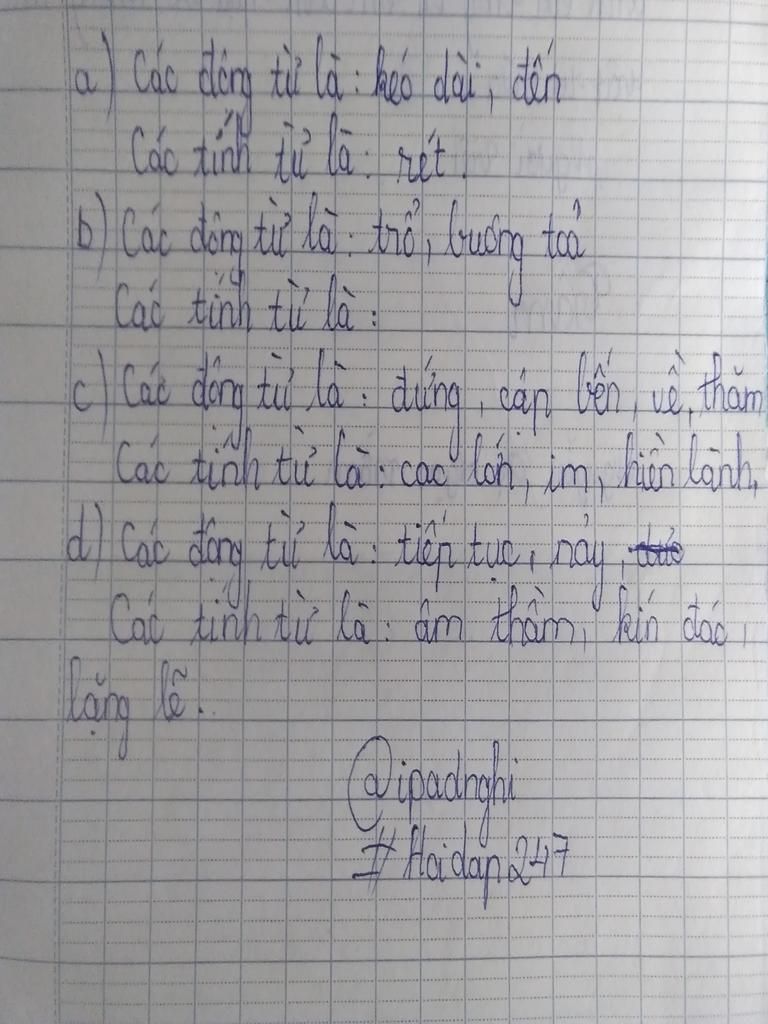 a) Các động từ là: kéo dài, đến
Các tính từ là: rét.
b) Các động từ là: trổ, buông toả
Các tính từ là:
c) Các động từ là: đứng, cáp bến, về, thăm
Các tính từ là: cao lớn, im, hiền lành,
d) Các động từ là: tiếp tục, nảy,
Các tính từ là: âm thầm, kín đáo,
lặng lẽ.
@ipadnghi
#Hoidap247